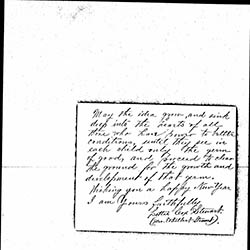 May the idea grow, and sink
deep into the hearts of all
those who have power to better
conditions, until they see in
each child only the germ
of good, and proceed to clear
the ground for the growth and
development of that germ.
Wishing you a happy New Year
I am Yours faithfully
Stewart.